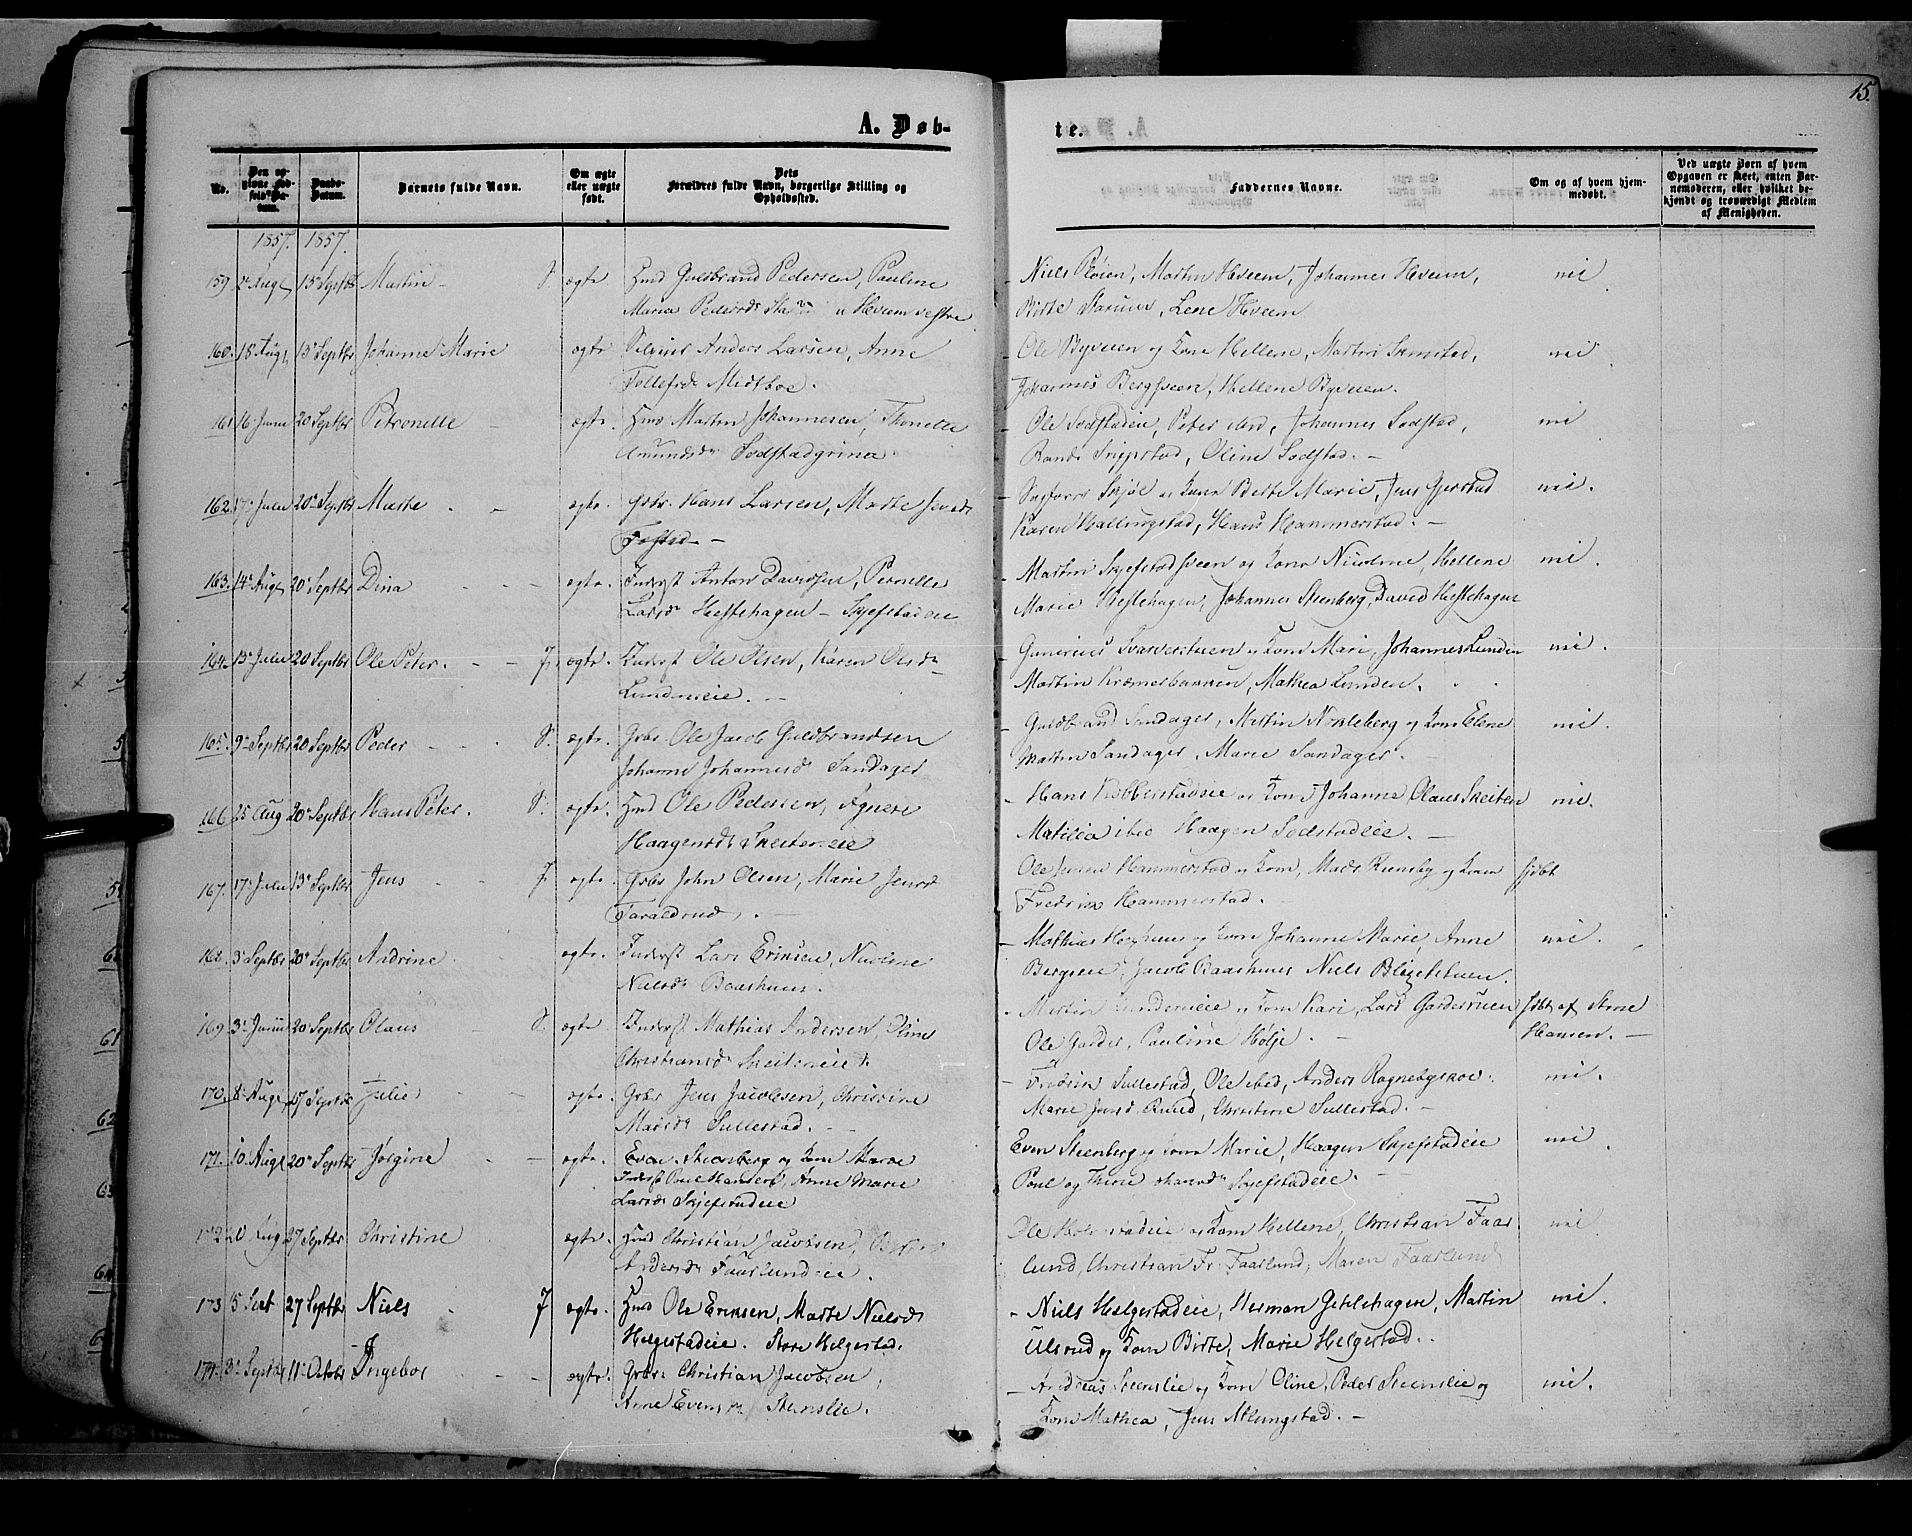 15.
A. Døb-
te.
No.
Den opgivne Fødsels-Datum.
Daabs-Datum.
Barnets fulde Navn.
Om ægte eller uægte født.
Dets Forældres fulde Navn, borgerlige Stilling og Opholdssted.
Faddernes Navne.
Om og af hvem hjemmedøbt.
Ved uægte Børn af hvem Opgaven er skeet, enten Barnemoderen, eller hvilket bekjendt og troværdigt Medlem af Menigheden.
1857. 1857.
159 2 Aug 13 Septbr Martin S. ægte Hmd Guldbrand Pedersen, Pauline
Maria Pedersd. Hveem vestre
Niels Pløien, Martin Hveem, Johannes Hveem,
Birte Starum, Lene Hveem
nei
160. 18 Aug 13 Septbr Johanne Marie ægte Anders Larsen, Anne
Tollefsd. Midtboe.
Ole Byveien og Kone Hellene, Martin
Johannes Bergseen, Hellene Byveien.
nei
161 16 Juni 20 Septbr Petronelle ægte Hmd Martin Johannesen, Thonette
Amundsd. Sodstadgrina.
Ole Sodstadeie, Peter ibid, Johannes Sodstad,
Rande Snippstad, Oline Sodstad.
nei
162. 17 Julii 20 Septbr Marte ægte. Grbr. Hans Larsen, Marte Jensd.
Fostad
Skjøl og Kone Birte Marie, Jens Gjerstad
Karen Hallingstad, Hans Hammerstad.
nei.
163. 14 Aug 20 Septbr Dina ægte. Inderst Anton Davidsen, Pernelle
Larsd. Hestehagen - Skjefstadeie
Martin Skjefstadsveen og Kone Nicoline, Hellene
Marie Hestehagen, Johannes Steenberg, David Hestehagen
nei.
164. 13 Julii 20 Septbr Ole Peter. J. ægte. Inderst Ole Olsen, Karen Olsd.
Lundeneie.
Gunerius Svarverstuen og Kone Mari, Johannes Lunden
Martin Kræmerbakken, Mathea Lunden.
nei.
165. 9 Septbr 20 Septbr Peder S. ægte. Grbr. Ole Jacob Guldbrandsen
Johanne Johannesd. Sandager
Guldbrand Sandager, Martin Nøkleberg og Kone Elene
Martin Sandager, Marie Sandager.
nei.
166 25 Aug 20 Septbr Hans Peter. S. ægte. Hmd Ole Pedersen, Agnete
Haagensd. Skeiteneie
Hans Kobberstadeie og Kone Johanne, Olaus Skeiten
Matilda ibed Haagen Sodstadeie.
nei.
167. 17 Julii 13 Septbr Jens J. ægte. Grbr John Olsen, Marie Jensd
Taraldrud.
Ole Jensen Hammerstad og Kone, Mads Kuneby og Kone
Fredrik Hammerstad.
hjdbt
168. 3 Septbr 20 Septbr Andrine ægte. Inderst Lars Eriksen, Nicoline
Nielsd. Baashuus.
Mathias og Kone Johanne Marie, Anne
Bergseie, Jacob Baashuus Niels
nei.
169. 3 Junii 20 Septbr Olaus S. ægte Inderst Mathias Andersen, Oline
Christiansd. Skeiteneie.
Martin Lundeneie og Kone Kari, Lars
Ole Garder, Pauline Hølje.
hjdbt af Stine
Hansen.
170. 8 Aug 27 Septbr Julie ægte. Grbr Jens Jacobsen, Christine
Madsd. Sullestad.
Fredrik Sullestad, Ole ibed, Anders Rognebyskov
Marie Jensd. Ruud, Christine Sullestad.
nei.
171. 10. Aug 20 Septbr Jørgine ægte. Even Steenberg og Kone Marie
Inderst Poul Hansen, Anne Marie
Larsd. Skjefstadeie
Even Steenberg og Kone Marie, Haagen Skjefstadeie
Poul og Thrine Skjefstadeie.
nei
172 Aug 27 Septbr Christine ægte. Hmd Christian Jacobsen,
Andersd. Faarlundeie.
Ole og Kone Hellene, Christian Faar
lund, Christian Fr. Faarlund, Maren Faarlund
nei
173 5 Sept 27 Septbr Niels J ægte. Hmd Ole Eriksen, Marte Nielsd.
Helgestadeie. Store Helgestad.
Niels Helgestadeie, Herman Getlehagen, Martin
Ulsrud og Kone Birte, Marie Helgestad.
nei.
174. 3 Septbr 11. Octobr Ingebor ægte. Grbr. Christian Jacobsen,
Anne Evensd. Steenslie.
Andreas Steenslie og Kone Oline, Peder Steenslie og
Kone Mathea, Jens Alungstad.
nei.